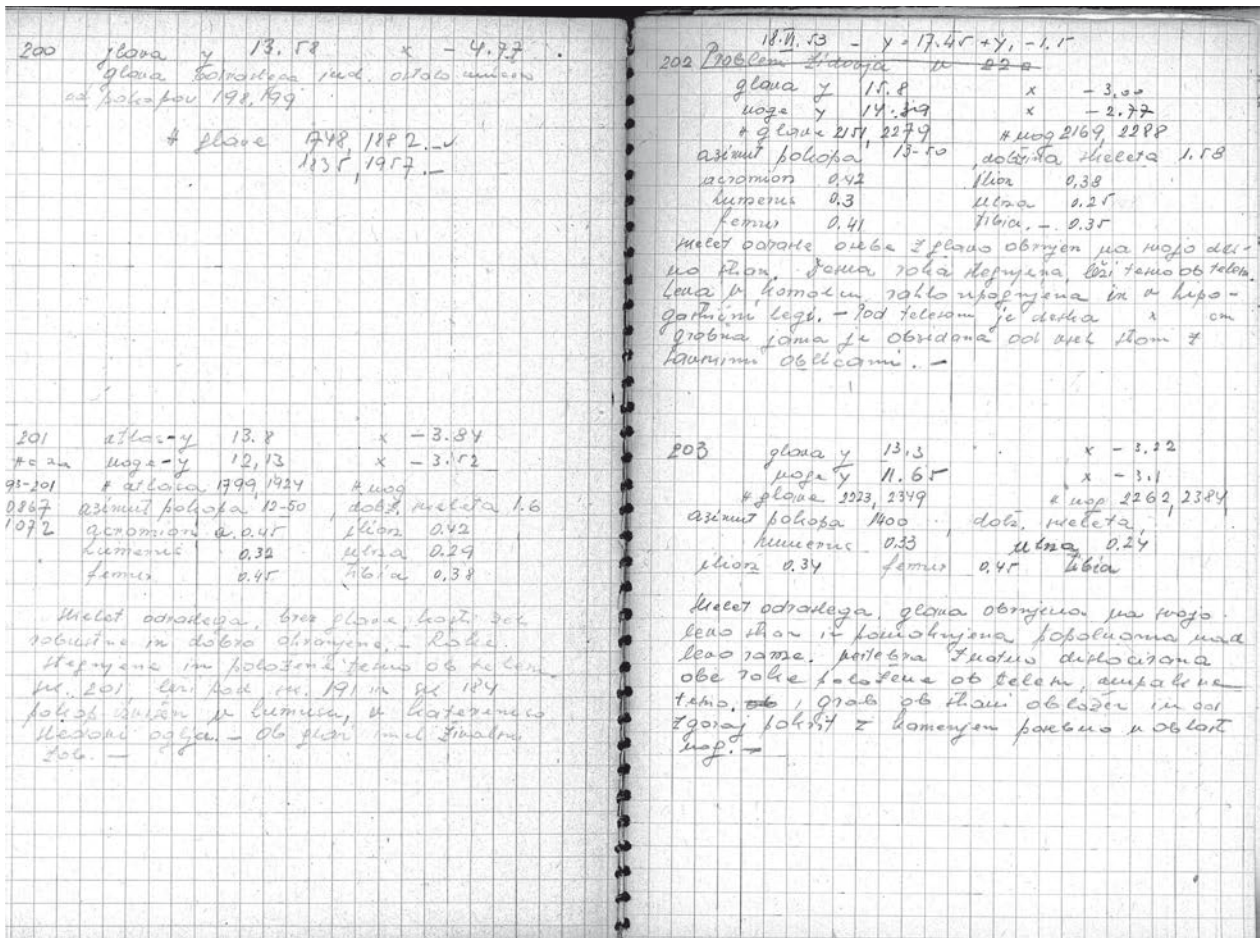 200 glava y 13.58 x -4.77.
glava odraslega ind. ostalo uničeno
od pokopov 198, 199
# glave 1748, 1882.-
1835, 1957.-
201 atlas-y 13.8 x -3.84
noge-y 12,13 x -3.52
93-201 # atlasa 1799, 1924 # nog
0867 azimut pokopa 12-50, dolž. skeleta 1.6
1072 acromion 0.45 ilion 0.42
humerus 0.32 ulna 0.29
femur 0.45 tibia 0.38
skelet odraslega, brez glave, kosti zelo
robustne in dobro ohranjene. - Roke
stegnjene in položene tesno ob telesu
sk. 201, leži pod sk. 191 in sk 184
pokop v humusu, v katerem so
sledovi oglja. - Ob glavi imel živalski
zob. -
18.VI.53 - y = 17.45 + y, -1.5
202 Problem zidovja v 22a
glava y 15.8 x -3.00
noge y 14.29 x -2.77
# glave 2151, 2279 # nog 2169, 2288
azimut pokopa 13-50, dolžina skeleta 1.58
acromion 0.42 ilion 0,38
humerus 0.3 ulna 0.25
femur 0.41 tibia. - 0.35
skelet odrasle osebe z glavo obrnjen na svojo des-
no stran. Desna roka stegnjena, leži tesno ob telesu,
leva v komolcu rahlo upognjena in v hipo-
gastrični legi. - Pod telesom je deska x cm
grobna jama je obzidana od vseh strani z
oblicami. -
203 glava y 13,3 x -3.22
noge y 11.65 x -3.1
# glave 2223, 2349 # nog 2262, 2384
azimut pokopa 1400, dolž. skeleta,
humerus 0.33 ulna 0.24
ilion 0.34 femur 0.45 tibia
Skelet odraslega, glava obrnjena na svojo
levo stran in pomaknjena popolnoma nad
levo rame. vertebra znatno dislocirana
obe roke položene ob telesu, ampak ne
tesno, grob ob strani obložen in od
zgoraj pokrit z kamenjem posebno v oblasti
nog. -